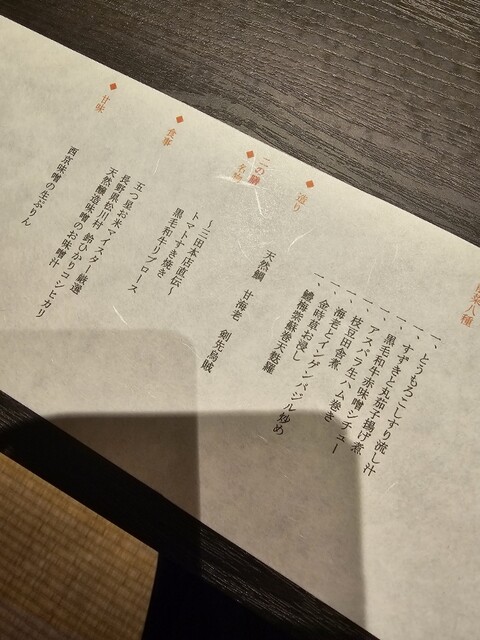 八種
一、とうもろこしすり流し汁
一、すずきと丸茄子揚げ煮
一、黒毛和牛赤味噌シチュー
一、アスパラ生ハム巻き
一、枝豆田舎煮
一、海老とインゲンバジル炒め
一、金時草お浸し
一、鱧梅紫蘇巻天麩羅
◆造り
天然鯛 甘海老 剣先烏賊
◆二の膳 名物
〜三田本店直伝〜
トマトすき焼き
黒毛和牛リブロース
◆食事
五つ星お米マイスター厳選
長野県松川村 鈴ひかりコシヒカリ
天然醸造味噌のお味噌汁
◆甘味
西京味噌の生ぷりん